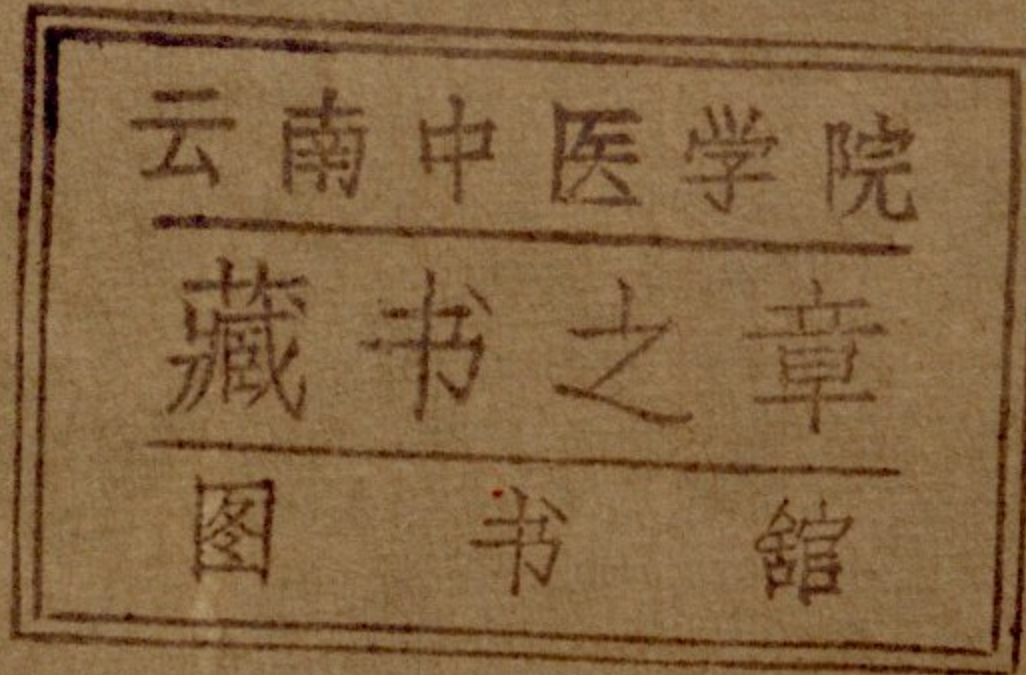 云南中医学院
藏书之章
图书舘